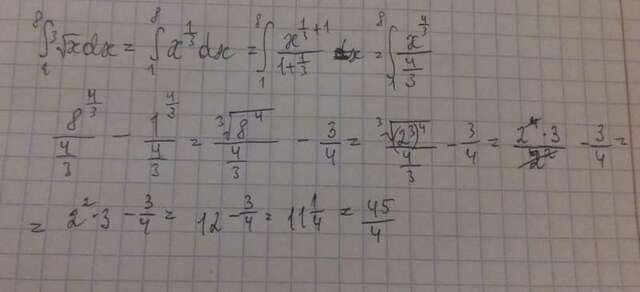 ∫₁⁸ ³√x dx = ∫₁⁸ x^(1/3) dx = ∫₁⁸ x^(1/3+1)/(1+1/3) x = ∫₁⁸ x^(4/3)/(4/3)
8^(4/3)/(4/3) − 1^(4/3)/(4/3) = ³√(8⁴)/(4/3) − 3/4 = ³√((2³)⁴)/(4/3) − 3/4 = 2⁴·3/2² − 3/4 =
= 2²·3 − 3/4 = 12 − 3/4 = 11 1/4 = 45/4